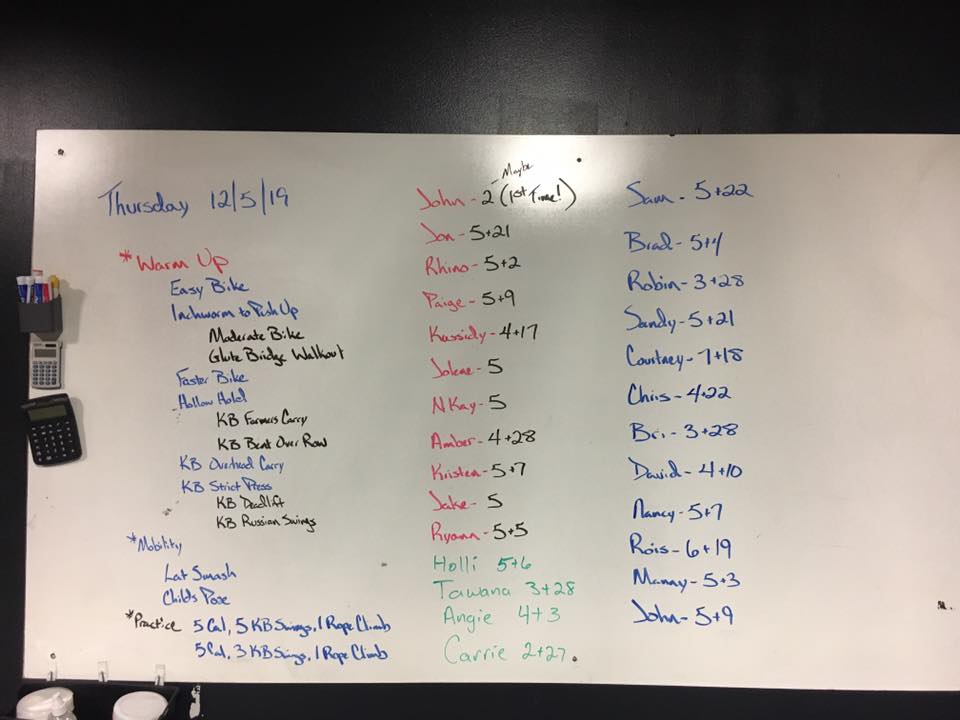 Thursday 12/5/19
*Warm Up
Easy Bike
Inchworm to Push Up
Moderate Bike
Glute Bridge Walkout
Faster Bike
Hollow Hold
KB Farmers Carry
KB Bent Over Row
KB Overhead Carry
KB Strict Press
KB Deadlift
KB Russian Swings
*Mobility
Lat Smash
Childs Pose
*Practice 5 Cal, 5 KB Swings, 1 Rope Climb
5 Cal, 3 KB Swings, 1 Rope Climb
Maybe
John - 2 (1st Time!)
Jon - 5+21
Rhino - 5+2
Paige - 5+9
Kassidy - 4+17
Jolene - 5
NKay - 5
Amber - 4+28
Kristen - 5+7
Jake - 5
Ryann - 5+5
Holli 5+6
Tawana 3+28
Angie 4+3
Carrie 2+27.
Sam - 5+22
Brad - 5+4
Robin - 3+28
Sandy - 5+21
Courtney - 7+18
Chris - 4+22
Bri - 3+28
David - 4+10
Nancy - 5+7
Rois - 6+19
Manny - 5+3
John - 5+9